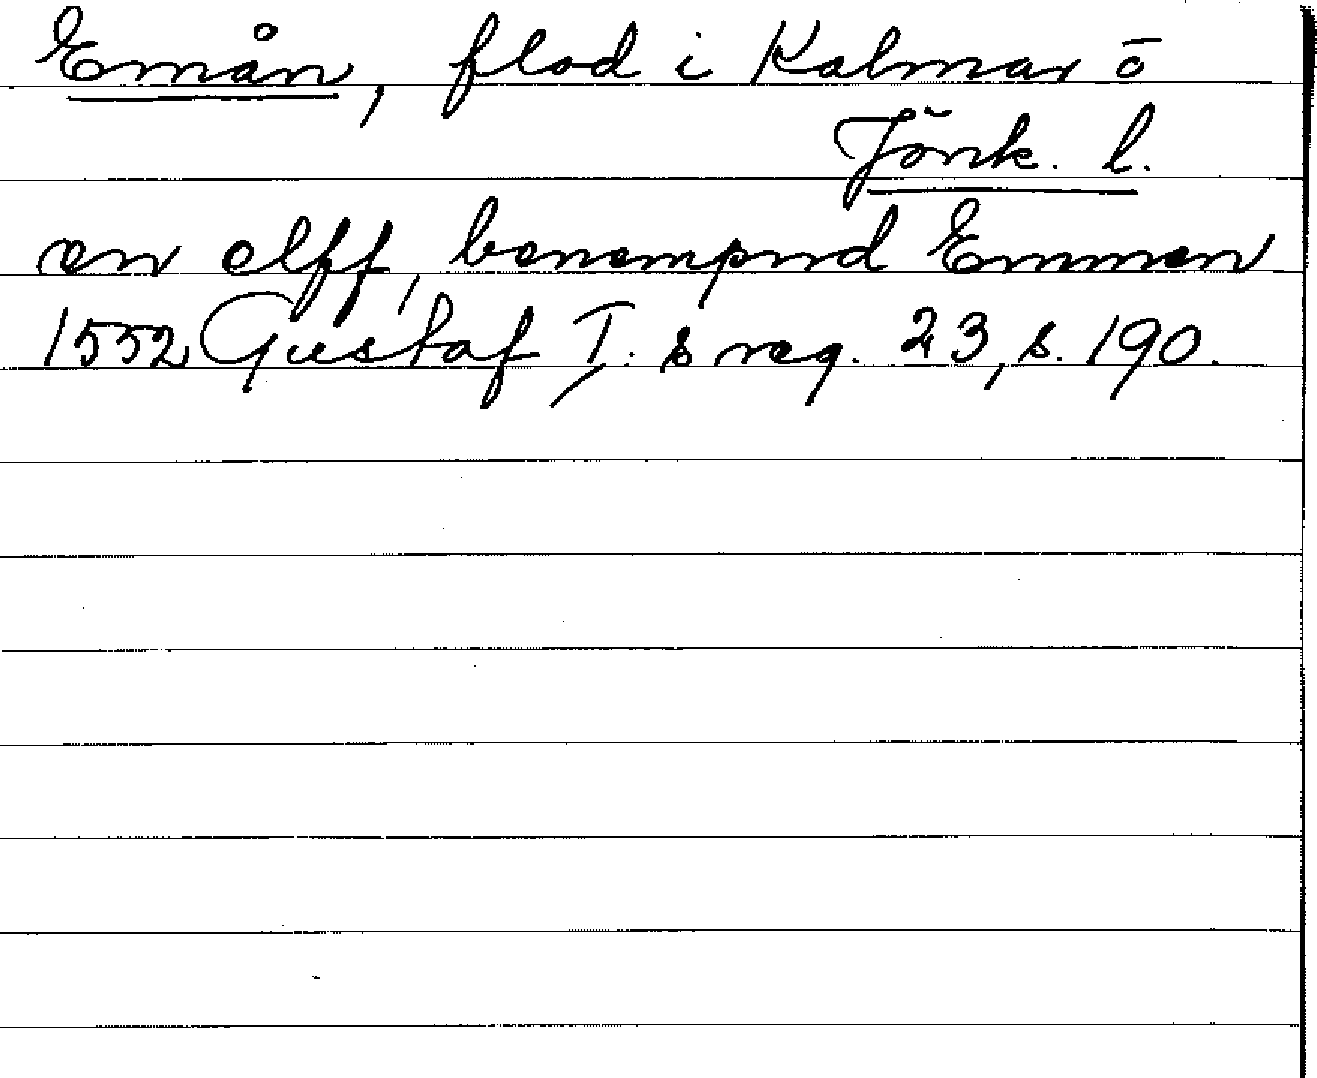 Emån, flod i Kalmar o
Jönk. l.
en elff, benempnd Emmen
1552 Gustaf I. s reg. 23, s. 190.